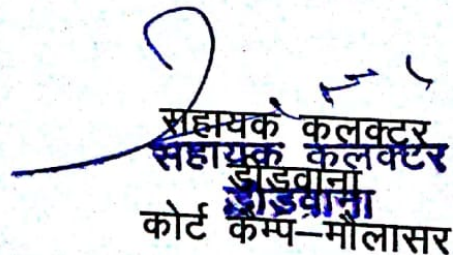 सहायक कलक्टर
सहायक कलक्टर
डीडवाना
डीडवाना
कोर्ट कैम्प–मौलासर